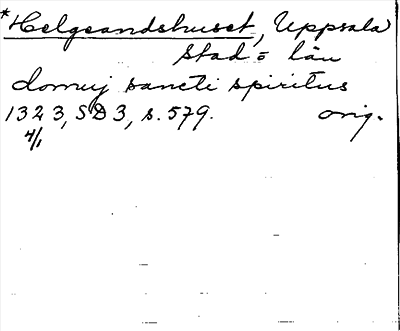 *Helgeandshuset, Uppsala
stad o län
domuj sancti spiritus
1323, SD3, s. 579. orig.
4/1